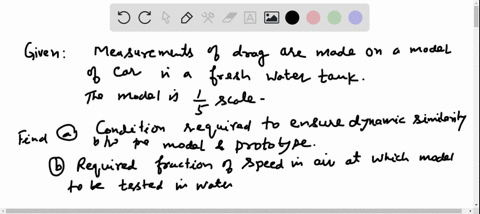 Given: Measurements of drag are made on a model
of car in a fresh water tank.
The model is 1/5 scale -
Find (a) Condition required to ensure dynamic similarity
b/w model & prototype.
(b) Required fraction of speed in air at which model
to be tested in water